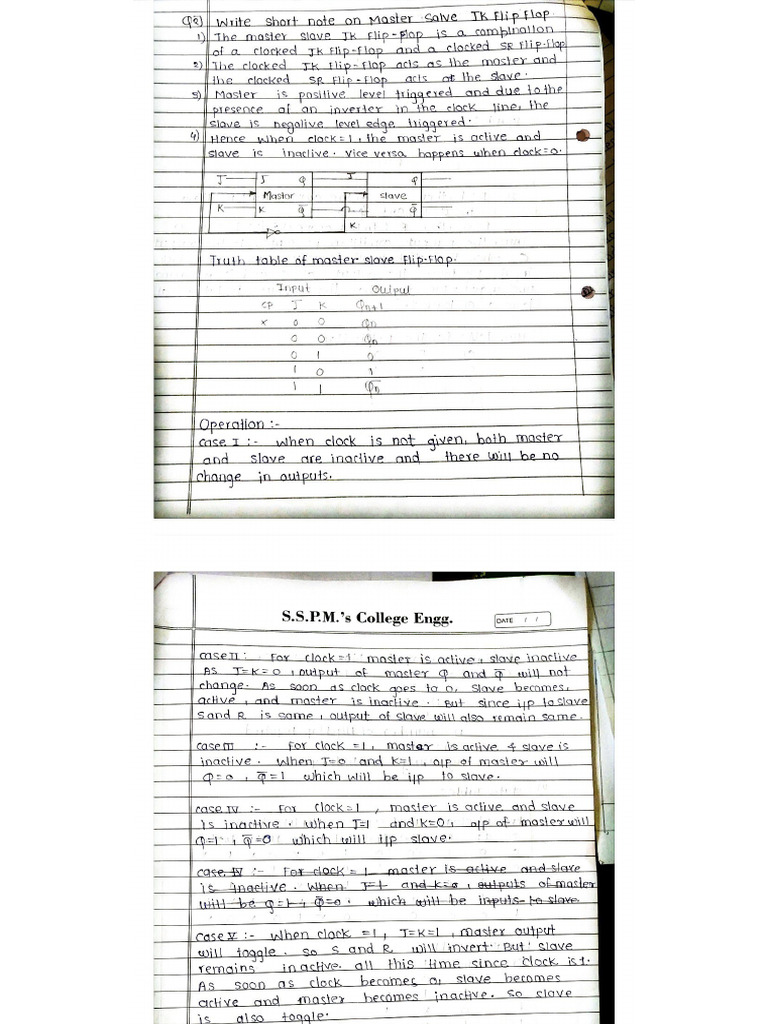 Q2) Write short note on Master Salve JK Flip Flop
1) The master slave JK flip-flop is a combination
of a clocked JK flip-flop and a clocked SR flip-flop
2) The clocked JK flip-flop acts as the master and
the clocked SR flip-flop acts at the slave.
3) Master is positive level triggered and due to the
presence of an inverter in the clock line, the
slave is negative level edge triggered.
4) Hence when clock=1, the master is active and
slave is inactive. vice versa happens when clock=0.
J J Q J Q
Master slave
K K Q̅ Q̅
K
Truth table of master slave flip-flop.
Input Output
CP J K Qn+1
x 0 0 Qn
0 0 Qn
0 1 0
1 0 1
1 1 Q̅n
Operation :-
case I :- when clock is not given, both master
and slave are inactive and there will be no
change in outputs.
S.S.P.M.'s College Engg.
DATE / /
case II : For clock=1 master is active, slave inactive
As J=K=0, output of master Q and Q̅ will not
change. As soon as clock goes to 0, slave becomes,
active, and master is inactive. But since i/p to slave
S and R is same, output of slave will also remain same.
case III :- For clock =1, master is active & slave is
inactive. when J=0 and K=1, o/p of master will
Q=0, Q̅=1 which will be i/p to slave.
case IV :- For clock=1, master is active and slave
is inactive. when J=1 and K=0, o/p of master will
Q=1, Q̅=0 which will i/p slave.
case IV :- For clock = 1 master is active and slave
is inactive. when J=1 and K=0, outputs of master
will be Q=1, Q̅=0. which will be inputs to slave
case V :- when clock =1, J=K=1, master output
will toggle. so S and R will invert. But slave
remains inactive. all this time since clock is 1.
As soon as clock becomes 0, slave becomes
active and master becomes inactive. so slave
is also toggle.